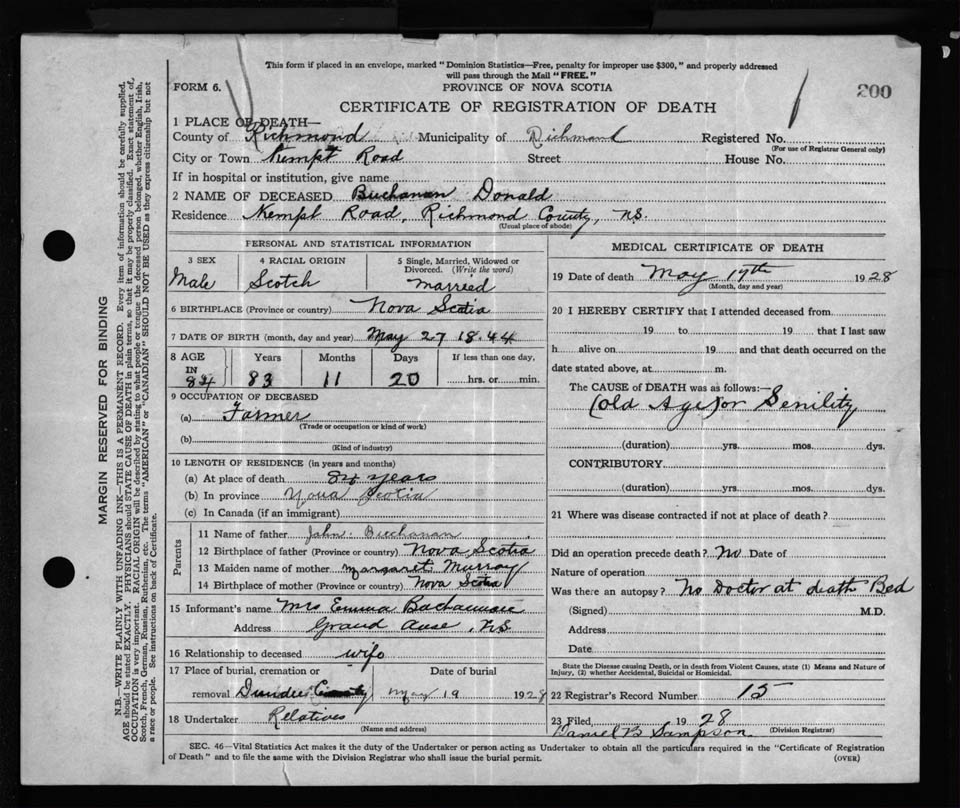 This form if placed in an envelope, marked "Dominion Statistics—Free, penalty for improper use $300," and properly addressed
will pass through the Mail "FREE."
FORM 6.
PROVINCE OF NOVA SCOTIA
200
CERTIFICATE OF REGISTRATION OF DEATH
1 PLACE OF DEATH—
County of Richmond Municipality of Richmond Registered No.
(For use of Registrar General only)
City or Town Kempt Road Street House No.
If in hospital or institution, give name
2 NAME OF DECEASED Buchanan Donald
Residence Kempt Road, Richmond County, N.S.
(Usual place of abode)
PERSONAL AND STATISTICAL INFORMATION
3 SEX 4 RACIAL ORIGIN 5 Single, Married, Widowed or
Divorced. (Write the word)
Male Scotch Married
6 BIRTHPLACE (Province or country) Nova Scotia
7 DATE OF BIRTH (month, day and year) May 27 1844
8 AGE Years Months Days If less than one day,
IN
84 83 11 20 hrs. or min.
9 OCCUPATION OF DECEASED
(a) Farmer
(Trade or occupation or kind of work)
(b)
(Kind of industry)
10 LENGTH OF RESIDENCE (in years and months)
(a) At place of death 84 years
(b) In province Nova Scotia
(c) In Canada (if an immigrant)
Parents
11 Name of father John Buchanan
12 Birthplace of father (Province or country) Nova Scotia
13 Maiden name of mother Margaret Murray
14 Birthplace of mother (Province or country) Nova Scotia
15 Informant's name Mrs Emma
Address Grand Anse, N.S
16 Relationship to deceased wife
17 Place of burial, cremation or Date of burial
removal Dundee May 19 1928
18 Undertaker Relatives
(Name and address)
MEDICAL CERTIFICATE OF DEATH
19 Date of death May 17th 1928
(Month, day and year)
20 I HEREBY CERTIFY that I attended deceased from
19 to 19 that I last saw
h alive on 19 and that death occurred on the
date stated above, at m.
The CAUSE of DEATH was as follows:—
(old Age) or Senility
(duration) yrs. mos. dys.
CONTRIBUTORY
(duration) yrs. mos. dys.
21 Where was disease contracted if not at place of death?
Did an operation precede death? No Date of
Nature of operation
Was there an autopsy? No Doctor at death Bed
(Signed) M.D.
Address
Date
State the Disease causing Death, or in death from Violent Causes, state (1) Means and Nature of
Injury, (2) whether Accidental, Suicidal or Homicidal.
22 Registrar's Record Number 15
23 Filed 1928
Daniel B Sampson (Division Registrar)
SEC. 46—Vital Statistics Act makes it the duty of the Undertaker or person acting as Undertaker to obtain all the particulars required in the "Certificate of Registration
of Death" and to file the same with the Division Registrar who shall issue the burial permit.
(OVER)
MARGIN RESERVED FOR BINDING
N.B.—WRITE PLAINLY, WITH UNFADING INK—THIS IS A PERMANENT RECORD. Every item of information should be carefully supplied.
AGE should be stated EXACTLY. PHYSICIANS should STATE CAUSE OF DEATH in plain terms, so that it may be properly classified. Exact statement of
OCCUPATION is very important. RACIAL ORIGIN will be described by stating to what people or tongue the deceased person belonged, whether English, Irish,
Scotch, French, German, Russian, Ruthenian, etc. The terms "AMERICAN" or "CANADIAN" SHOULD NOT BE USED as they express citizenship but not
a race or people. See instructions on back of Certificate.